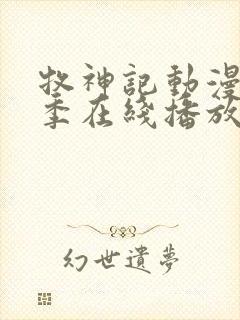 牧神記動漫
季在綫播放
幻世遺夢